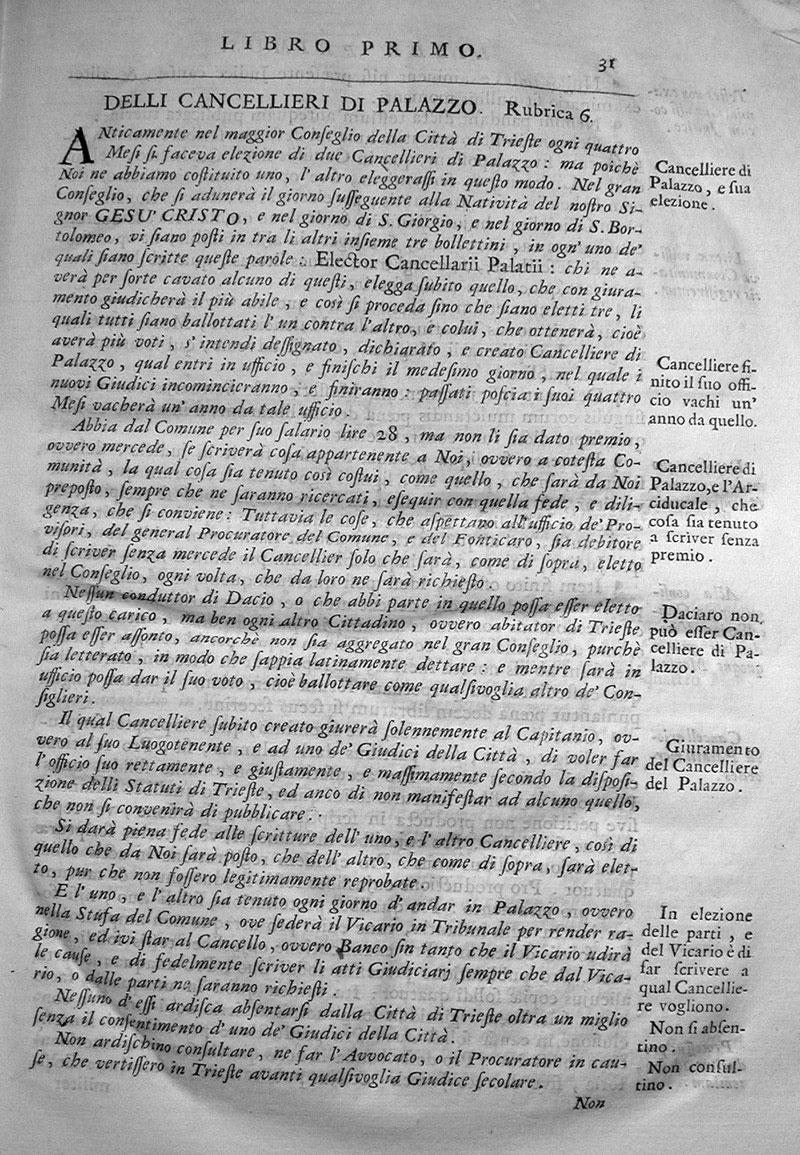 LIBRO PRIMO.
31
DELLI CANCELLIERI DI PALAZZO. Rubrica 6.
ANticamente nel maggior Conſeglio della Città di Trieſte ogni quattro
Meſi ſi faceva elezione di due Cancellieri di Palazzo : ma poichè
Noi ne abbiamo coſtituito uno, l' altro eleggeraſſi in queſto modo. Nel gran
Conſeglio, che ſi adunerà il giorno ſuſſeguente alla Natività del noſtro Si-
gnor GESU' CRISTO, e nel giorno di S. Giorgio, e nel giorno di S. Bor-
tolomeo, vi ſiano poſti in tra li altri inſieme tre bollettini, in ogn' uno de'
quali ſiano ſcritte queſte parole : Elector Cancellarii Palatii : chi ne a-
verà per ſorte cavato alcuno di queſti, elegga ſubito quello, che con giura-
mento giudicherà il più abile, e così ſi proceda ſino che ſiano eletti tre, li
quali tutti ſiano ballottati l' un contra l'altro, e colui, che ottenerà, cioè
averà più voti, s' intendi deſſignato, dichiarato, e creato Cancelliere di
Palazzo, qual entri in ufficio, e finiſchi il medeſimo giorno, nel quale i
nuovi Giudici incomincieranno, e finiranno : paſſati poſcia i ſuoi quattro
Meſi vacherà un' anno da tale ufficio.
Abbia dal Comune per ſuo ſalario lire 28, ma non li ſia dato premio,
ovvero mercede, ſe ſcriverà coſa appartenente a Noi, ovvero a coteſta Co-
munità, la qual coſa ſia tenuto così coſtui, come quello, che ſarà da Noi
prepoſto, ſempre che ne ſaranno ricercati, eſequir con quella fede, e dili-
genza, che ſi conviene : Tuttavia le coſe, che aſpettano all' ufficio de' Pro-
viſori, del general Procuratore del Comune, e del Fonticaro, ſia debitore
di ſcriver ſenza mercede il Cancellier ſolo che ſarà, come di ſopra, eletto
nel Conſeglio, ogni volta, che da loro ne ſarà richieſto.
Neſſun conduttor di Dacio, o che abbi parte in quello poſſa eſſer eletto
a queſto carico, ma ben ogni altro Cittadino, ovvero abitator di Trieſte
poſſa eſſer aſſonto, ancorchè non ſia aggregato nel gran Conſeglio, purchè
ſia letterato, in modo che ſappia latinamente dettare : e mentre ſarà in
ufficio poſſa dar il ſuo voto, cioè ballottare come qualſivoglia altro de' Con-
ſiglieri.
Il qual Cancelliere ſubito creato giurerà ſolennemente al Capitanio, ov-
vero al ſuo Luogotenente, e ad uno de' Giudici della Città, di voler far
l' officio ſuo rettamente, e giuſtamente, e maſſimamente ſecondo la diſpoſi-
zione delli Statuti di Trieſte, ed anco di non manifeſtar ad alcuno quello,
che non ſi convenirà di pubblicare.
Si darà piena fede alle ſcritture dell' uno, e l' altro Cancelliere, così di
quello che da Noi ſarà poſto, che dell' altro, che come di ſopra, ſarà elet-
to, pur che non foſſero legitimamente reprobate.
E l' uno, e l' altro ſia tenuto ogni giorno d' andar in Palazzo, ovvero
nella Stufa del Comune, ove ſederà il Vicario in Tribunale per render ra-
gione, ed ivi ſtar al Cancello, ovvero Banco ſin tanto che il Vicario udirà
le cauſe, e di fedelmente ſcriver li atti Giudiciarj ſempre che dal Vica-
rio, o dalle parti ne ſaranno richieſti.
Neſſuno d' eſſi ardiſca abſentarſi dalla Città di Trieſte oltra un miglio
ſenza il conſentimento d' uno de' Giudici della Città.
Non ardiſchino conſultare, ne far l' Avvocato, o il Procuratore in cau-
ſe, che vertiſſero in Trieſte avanti qualſivoglia Giudice ſecolare.
Non
Cancelliere di
Palazzo, e ſua
elezione.
Cancelliere fi-
nito il ſuo offi-
cio vachi un'
anno da quello.
Cancelliere di
Palazzo, e l'Ar-
ciducale, che
coſa ſia tenuto
a ſcriver ſenza
premio.
Daciaro non
può eſſer Can-
celliere di Pa-
lazzo.
Giuramento
del Cancelliere
del Palazzo.
In elezione
delle parti, e
del Vicario è di
far ſcrivere a
qual Cancellie-
re vogliono.
Non ſi abſen-
tino.
Non conſul-
tino.